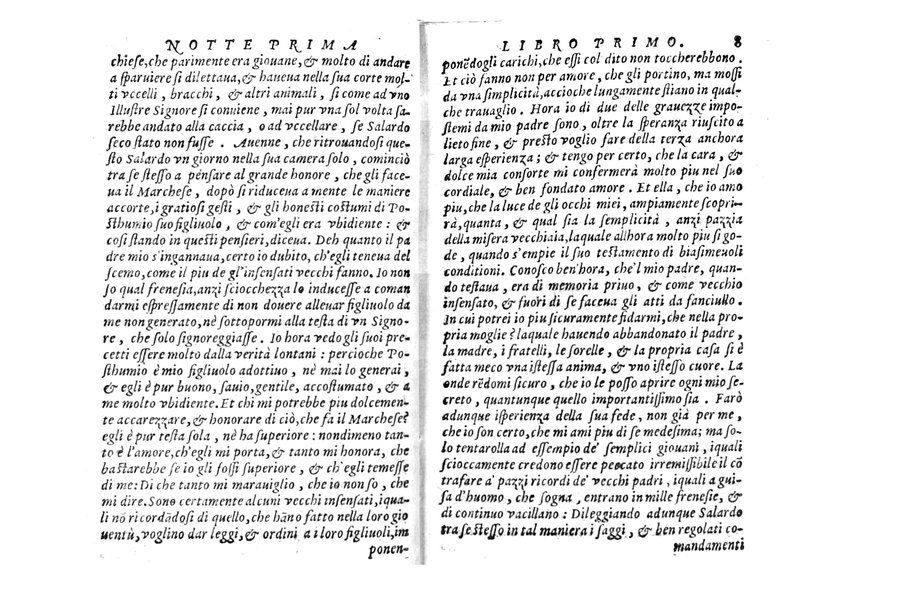 NOTTE PRIMA
chieſe, che parimente era giouane, & molto di andare
a ſparuiere ſi dilettaua, & haueua nella ſua corte mol-
ti vccelli, bracchi, & altri animali, ſi come ad vno
Illuſtre Signore ſi conuiene, mai pur vna ſol volta ſa-
rebbe andato alla caccia, o ad vccellare, ſe Salardo
ſeco ſtato non fuſſe. Auenne, che ritrouandoſi que-
ſto Salardo vn giorno nella ſua camera ſolo, cominciò
tra ſe ſteſſo a penſare al grande honore, che gli face-
ua il Marcheſe, dopò ſi riduceua a mente le maniere
accorte, i gratioſi geſti, & gli honeſti coſtumi di Po-
ſthumio ſuo figliuolo, & com'egli era vbidiente: &
coſi ſtando in queſti penſieri, diceua. Deh quanto il pa
dre mio s'ingannaua, certo io dubito, ch'egli teneua del
ſcemo, come il piu de gl'inſenſati vecchi fanno. Io non
ſo qual freneſia, anzi ſciocchezza lo induceſſe a coman
darmi eſpreſſamente di non douere alleuar figliuolo da
me non generato, nè ſottopormi alla teſta di vn Signo-
re, che ſolo ſignoreggiaſſe. Io hora vedo gli ſuoi pre-
cetti eſſere molto dalla verità lontani: percioche Po-
ſthumio è mio figliuolo adottiuo, nè mai lo generai,
& egli è pur buono, ſauio, gentile, accoſtumato, & a
me molto vbidiente. Et chi mi potrebbe piu dolcemen-
te accarezzare, & honorare di ciò, che fa il Marcheſe?
egli è pur teſta ſola, nè ha ſuperiore: nondimeno tan-
to è l'amore, ch'egli mi porta, & tanto mi honora, che
baſtarebbe ſe io gli foſſi ſuperiore, & ch'egli temeſſe
di me: Di che tanto mi marauiglio, che io non ſo, che
mi dire. Sono certamente alcuni vecchi inſenſati, iqua-
li nō ricordādoſi di quello, che hāno fatto nella loro gio
uentù, voglino dar leggi, & ordini a i loro figliuoli, im
ponen-
LIBRO PRIMO. 8
ponēdogli carichi, che eſſi col dito non toccherebbono.
Et ciò fanno non per amore, che gli portino, ma moſſi
da vna ſimplicità, accioche lungamente ſtiano in qual-
che trauaglio. Hora io di due delle grauezze impo-
ſtemi da mio padre ſono, oltre la ſperanza riuſcito a
lieto fine, & preſto voglio fare della terza anchora
larga eſperienza; & tengo per certo, che la cara, &
dolce mia conſorte mi confermerà molto piu nel ſuo
cordiale, & ben fondato amore. Et ella, che io amo
piu, che la luce de gli occhi miei, ampiamente ſcopri-
rà, quanta, & qual ſia la ſemplicità, anzi pazzia
della miſera vecchiaia, laquale allhora molto piu ſi go-
de, quando s'empie il ſuo teſtamento di biaſimeuoli
conditioni. Conoſco ben'hora, che'l mio padre, quan-
do teſtaua, era di memoria priuo, & come vecchio
inſenſato, & fuori di ſe faceua gli atti da fanciullo.
In cui potrei io piu ſicuramente fidarmi, che nella pro-
pria moglie? laquale hauendo abbandonato il padre,
la madre, i fratelli, le ſorelle, & la propria caſa ſi è
fatta meco vna iſteſſa anima, & vno iſteſſo cuore. La
onde rēdomi ſicuro, che io le poſſo aprire ogni mio ſe-
creto, quantunque quello importantiſſimo ſia. Farò
adunque iſperienza della ſua fede, non già per me,
che io ſon certo, che mi ami piu di ſe medeſima; ma ſo-
lo tentarolla ad eſſempio de' ſemplici giouani, iquali
ſcioccamente credono eſſere peccato irremiſſibile il cō
trafare a' pazzi ricordi de' vecchi padri, iquali a gui-
ſa d'huomo, che ſogna, entrano in mille freneſie, &
di continuo vacillano: Dileggiando adunque Salardo
tra ſe ſteſſo in tal maniera i ſaggi, & ben regolati co-
mandamenti